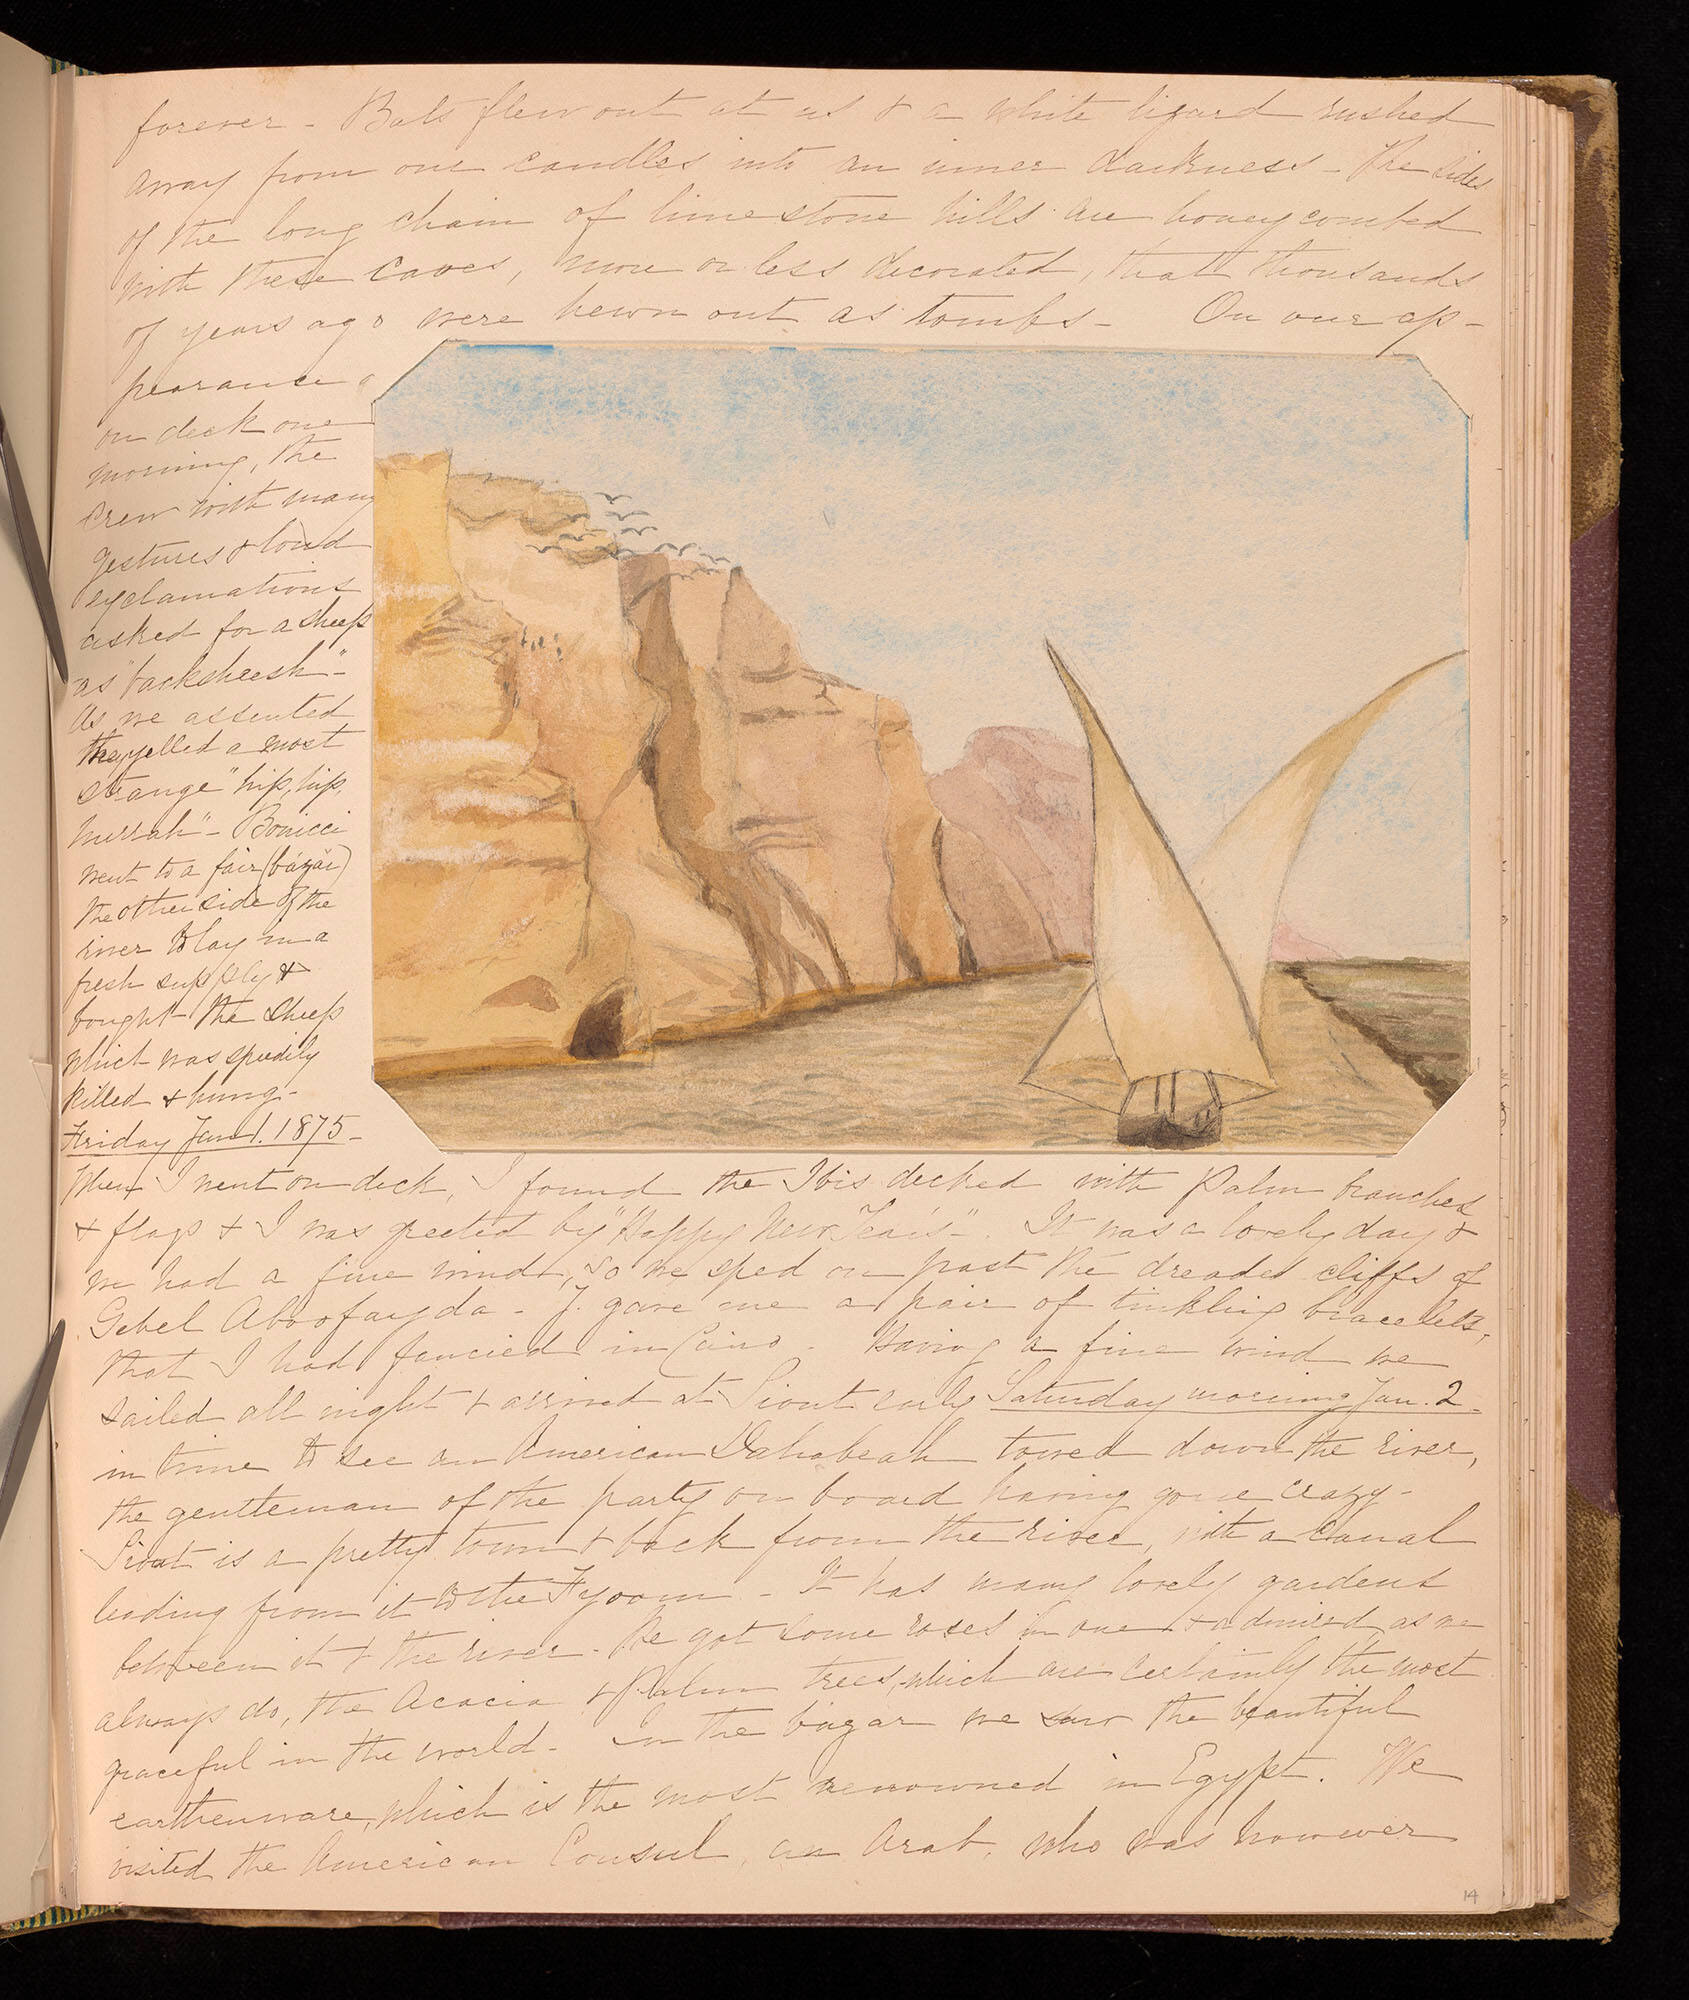 forever - Bats flew out at us & a white lizard rushed
away from our candles into an inner darkness - The sides
of the long chain of lime stone hills are honey combed
with these caves, more or less decorated, that thousands
of years ago were hewn out as tombs - On our ap-
pearance
on deck one
morning, the
crew with many
gestures & loud
exclamations
asked for a sheep
as "backsheesh" -
As we assented
they yelled a most
strange "hip, hip,
hurrah" - Bonicci
went to a fair (bázàr)
the other side of the
river to lay in a
fresh supply &
bought the sheep
which was speedily
killed & hung -
Friday Jan 1. 1875 -
When I went on deck, I found the Ibis decked with Palm branches
& flags & I was greeted by "Happy New Year's" - It was a lovely day &
we had a fine wind, so we sped on past the dreaded cliffs of
Gebel Aboofayda - J. gave me a pair of tinkling bracelets,
that I had fancied in Cairo - Having a fine wind we
sailed all night & arrived at Siout early Saturday morning Jan. 2 -
in time to see an American Dahabeah towed down the river,
the gentleman of the party on board having gone crazy -
Siout is a pretty town & back from the river, with a canal
leading from it to the Fyoom - It has many lovely gardens
between it & the river - We got some roses in one & admired, as we
always do, the Acacia & Palm trees, which are certainly the most
graceful in the world - In the bázar we saw the beautiful
earthenware, which is the most renowned in Egypt. We
visited the American Consul, an Arab, who was however
14